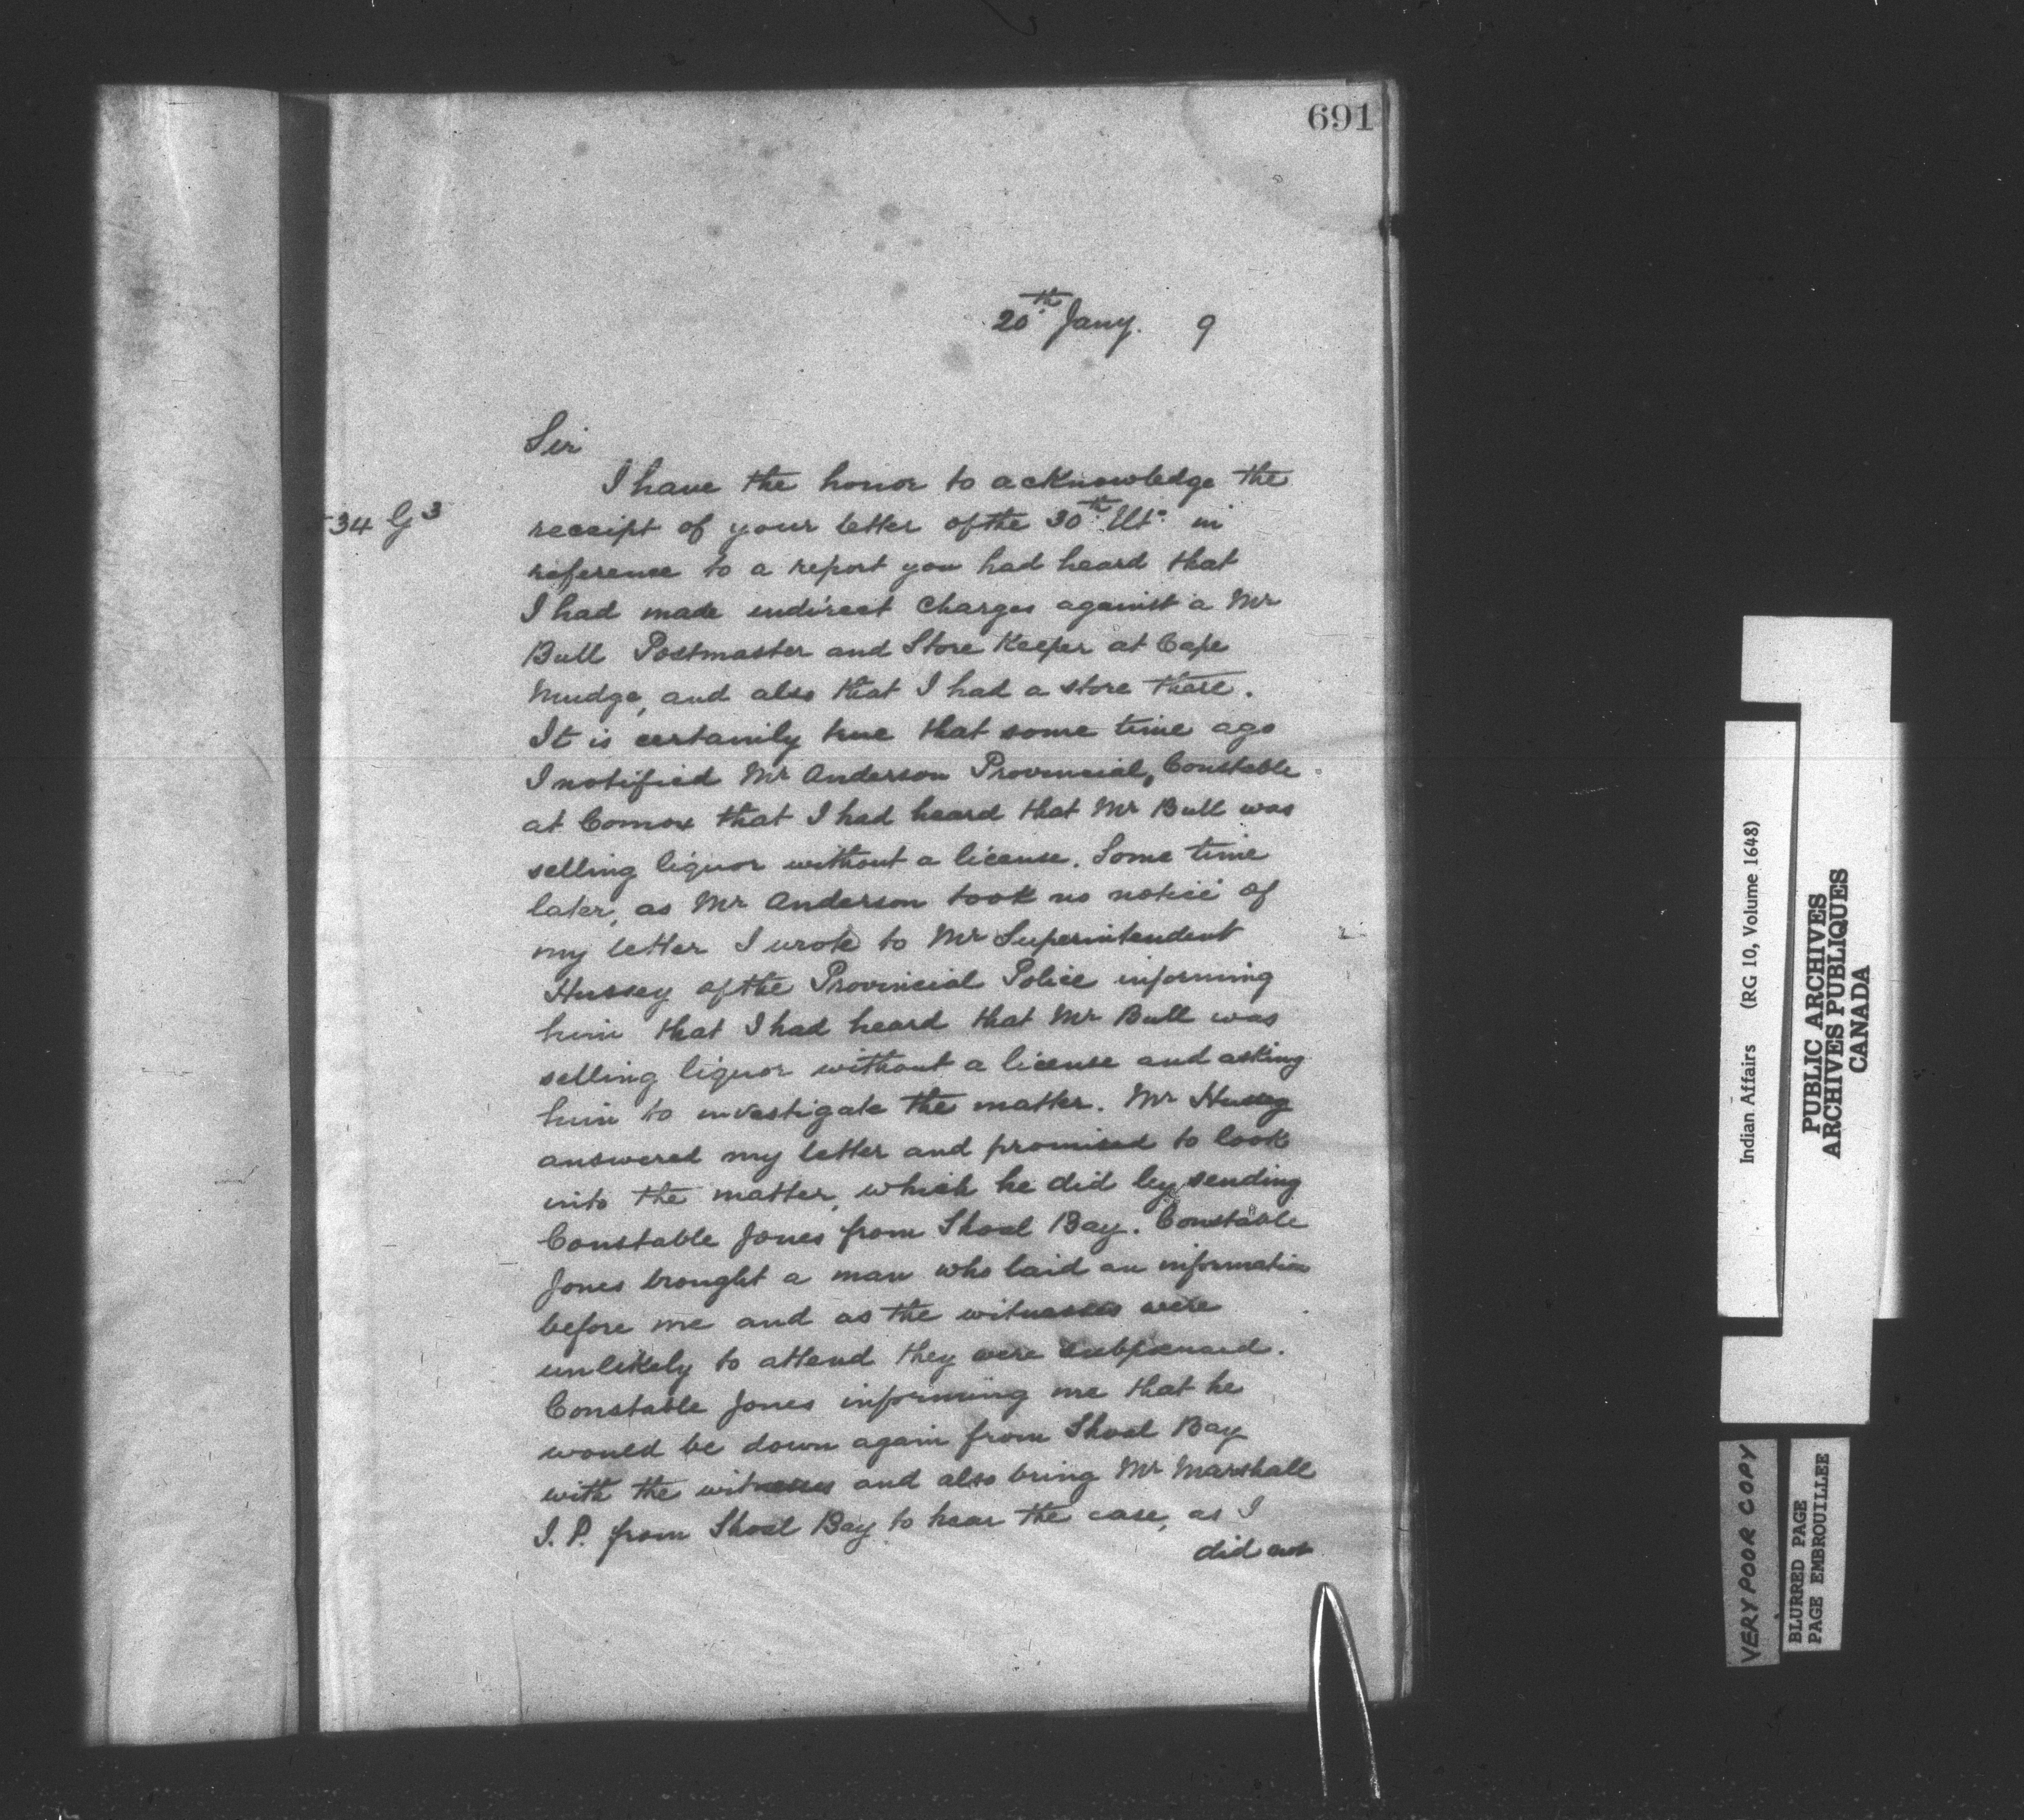 691
20th Jany. 9
Sir
I have the honor to acknowledge the
34 G3
receipt of your letter of the 30th Ulto. in
reference to a report you had heard that
I had made indirect Charges against a Mr
Bull Postmaster and Store Keeper at Cape
Mudge, and also that I had a store there.
It is certainily true that some time ago
I notified Mr Anderson Provincial, Constable
at Comox that I had heard that Mr Bull was
selling liquor without a license. Some time
later, as Mr Anderson took no notice of
my letter I wrote to Mr Superintendent
Hussey of the Provincial Police informing
him that I had heard that Mr Bull was
selling liquor without a license and asking
him to investigate the matter. Mr Hussey
answered my letter and promised to look
into the matter, which he did by sending
Constable Jones from Shoal Bay. Constable
Jones brought a man who laid an information
before me and as the witnesses were
unlikely to attend they were subpoenaed.
Constable Jones informing me that he
would be down again from Shoal Bay
with the witnesses and also bring Mr Marshall
J. P. from Shoal Bay to hear the case, as I
did not
Indian Affairs (RG 10, Volume 1648)
PUBLIC ARCHIVES
ARCHIVES PUBLIQUES
CANADA
VERY POOR COPY
BLURRED PAGE
PAGE EMBROUILLEE